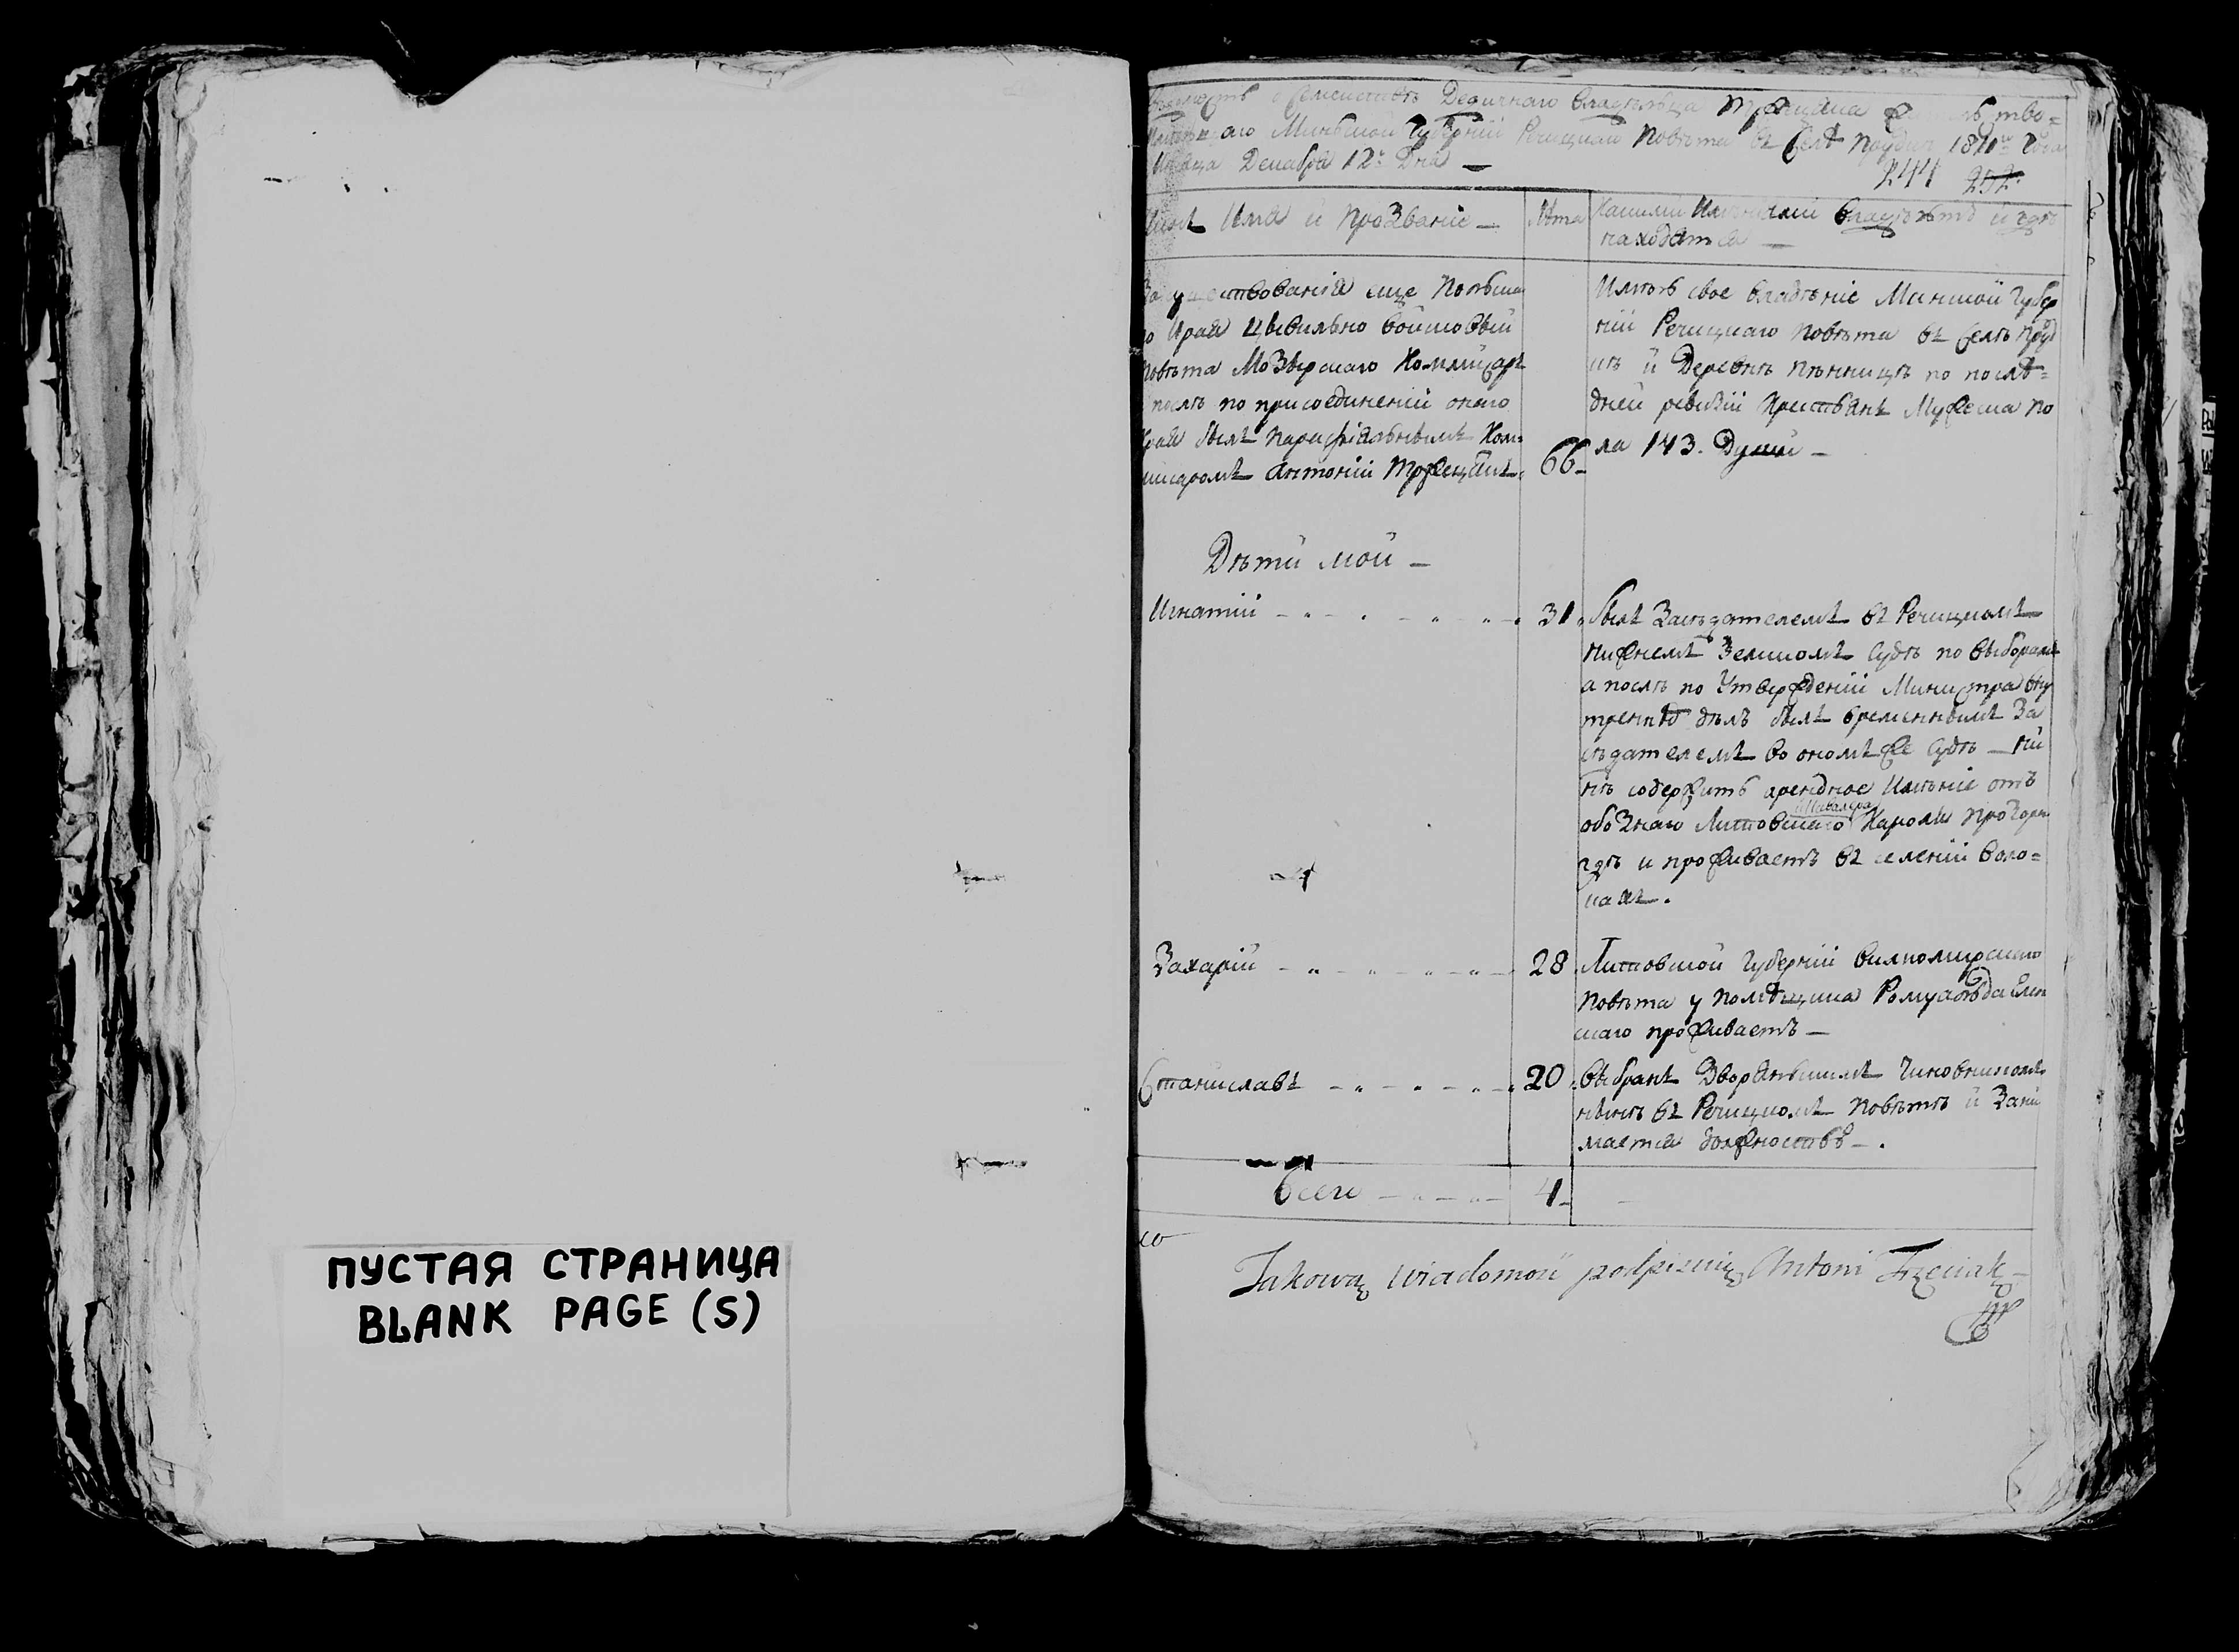 ПУСТАЯ СТРАНИЦА
BLANK PAGE (S)
Дедичнаго владѣльца
аго Минской Губернїи Рѣчицкаго Повѣта въ Селѣ 1811го года
Декабря 12го Дня —
244 252.
Имя и Прозванїе —
Лѣта
Какими Имѣнїями владѣетъ и гдѣ
находятся —
еще Польска
о Края Цывильно Войсковый
повѣта Мозырскаго Коммисаръ
послѣ по присоединенїи онаго
края былъ Парафїальнымъ Ком=
мисаромъ Антонїй Тржецякъ.
66 —
Имѣетъ свое владѣнїе Минской Губер
нїи Речицкаго повѣта въ Селѣ Пруд
кѣ и Деревнѣ по послѣ=
дней ревизїи Крестьянъ Мужеска по
ла 143. Души —
Дѣти мои —
Игнатїй
31.
былъ Засѣдателемъ въ Речицкомъ
нижнемъ Земскомъ Судѣ по выборамъ
а послѣ по Утвержденїи Министра вну
тренъ дѣлъ былъ временнымъ За
сѣдателемъ во ономъ же Судѣ — ны
нѣ содержитъ арендное Имѣнїе отъ
обознаго Литовскаго Кароля Прозора
Кавалера
гдѣ и проживаетъ въ селенїи
Захарїй
28.
Литовской Губернїи Вилкомирскаго
Повѣта у помѣщика Ромуальда
скаго проживаетъ —
Станиславъ
20.
выбранъ Дворянскимъ Чиновникомъ
нынѣ въ Речицкомъ Повѣтѣ и Зани
мается должностью — .
Всего
4 —
Takową wiadomość podpisuię Antoni Trzeciak —